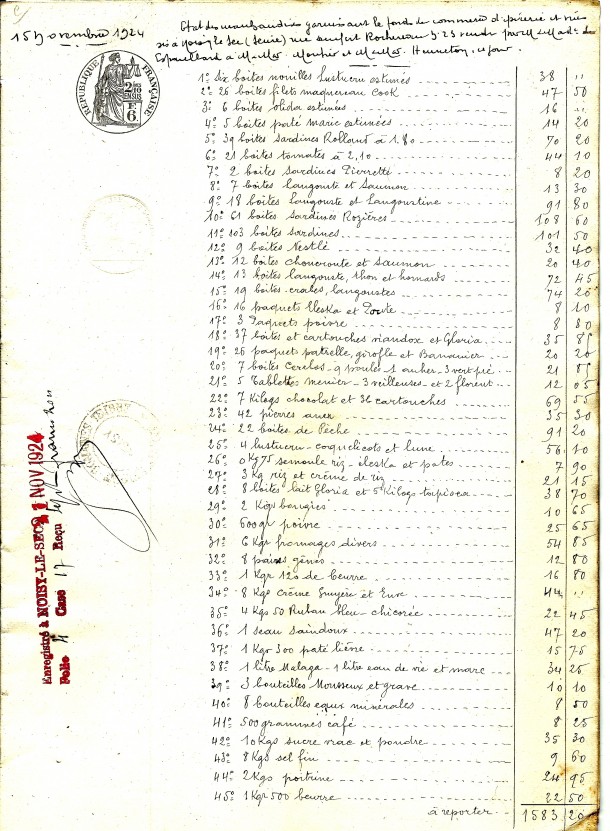 15 Novembre 1924
Etat des marchandises garnissant le fonds de commerce d'épicerie et vins
sis à Noisy le Sec (Seine) rue Denfert Rochereau N° 23 vendu par M. et Mad. de
à M. et Mad. Mouhier et M. et Mad. Henneton, ce jour.
RÉPUBLIQUE FRANÇAISE
2/10 EN SUS
F 6
1° Six boites nouilles Lustucru estimées 38 "
2° 26 boites filets maquereau Cook 47 50
3° 6 boites Olida estimées 16 "
4° 5 boites paté marie estimées 14 20
5° 39 boites sardines Rolland à 1.80 70 20
6° 21 boites tomates à 2,10 44 10
7° 2 boites sardines Pierrette 8 20
8° 7 boites langouste et Saumon 13 30
9° 18 boites langouste et Langoustine 91 80
10° 61 boites sardines Rozières 108 60
11° 103 boites sardines 101 50
12° 9 boites Nestlé 32 40
13° 12 boites choucroute et saumon 20 40
14° 13 boites langouste, thon et homards 72 45
15° 19 boites crabes, langoustes 74 20
16° 16 paquets Eleska et 8 10
17° 3 Paquets poivre 8 80
18° 37 boites et cartouches viandox et Gloria 35 85
19° 26 paquet patrelle, girofle et 20 20
20° 7 boites Cerelos - 9 poulet 1 auher, 3 vert pré 21 85
21° 5 Tablettes menier - 3 veilleuses et 2 florent 12 05
22° 7 Kilogs chocolat et 36 cartouches 69 55
23° 42 pierres 35 30
24° 22 boites de Pêche 91 20
25° 4 lustucru - coquelicots et lune 56 10
26° 0 Kg 75 semoule riz - eleska et pates 7 90
27° 3 Kg riz et crème de riz 21 15
28° 8 boites lait Gloria et 5 Kilogs tapioca 38 70
29° 2 Kogr bougies 10 65
30° 600 gr poivre 25 65
31° 6 Kgr fromages divers 54 85
32° 8 pains gênes 12 80
33° 1 Kgr 120 de beurre 16 80
34° 8 Kgs crème Gruyère et Eure 44 "
35° 4 Kgs 50 Ruban bleu - chicorée 22 45
36° 1 seau saindoux 47 20
37° 1 Kgr 300 paté lièvre 15 75
38° 1 litre Malaga - 1 litre eau de vie et marc 34 25
39° 3 bouteilles Mousseux et grave 10 10
40° 8 bouteilles eaux minérales 8 50
41° 500 grammes café 8 25
42° 10 Kgs sucre vrac et poudre 35 30
43° 8 Kgs sel fin 9 60
44° 2 Kgs poitrine 24 95
45° 1 Kgr 500 beurre 22 50
à reporter 1583 20
Enregistré à NOISY-LE-SEC, 1 NOV 1924
Folio Case 17 Reçu